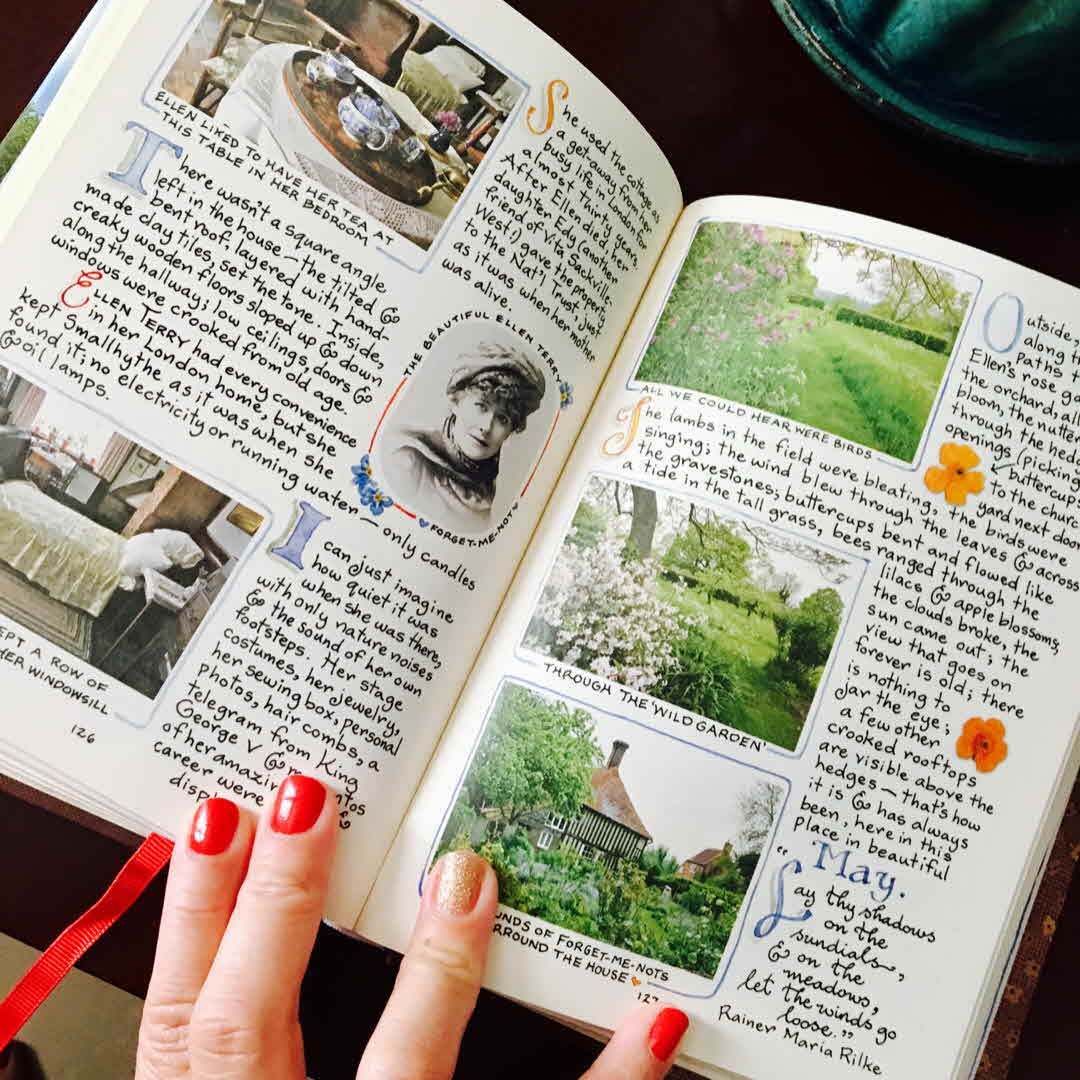 ELLEN LIKED TO HAVE HER TEA AT
THIS TABLE IN HER BEDROOM —
There wasn't a square angle
left in the house — the tilted &
bent roof, layered with hand-
made clay tiles, set the tone. Inside,
creaky wooden floors sloped up & down
along the hallway; low ceilings, doors &
windows were crooked from old age.
ELLEN TERRY had every convenience
in her London home, but she
kept Smallhythe as it was when she
found it; no electricity or running water — only candles
& oil lamps.
EPT A ROW OF
HER WINDOWSILL
126
She used the cottage as
a get-away from her
busy life in London for
almost thirty years.
After Ellen died, her
daughter Edy (another
friend of Vita Sackville-
West!) gave the property
to the Nat'l Trust, just
as it was when her mother
was alive.
THE BEAUTIFUL ELLEN TERRY
FORGET-ME-NOTS
I can just imagine
how quiet it was
when she was there,
with only nature noises
& the sound of her own
footsteps. Her stage
costumes, her jewelry,
her sewing box, personal
photos, hair combs, a
telegram from King
George V &
of her amazin
career were
disp
ALL WE COULD HEAR WERE BIRDS
The lambs in the field were bleating, the birds were
singing; the wind blew through the leaves & across
the gravestones; buttercups bent and flowed like
a tide in the tall grass, bees ranged through the
lilacs & apple blossoms,
the clouds broke, the
sun came out; the
view that goes on
forever is old; there
is nothing to
jar the eye;
a few other
crooked rooftops
are visible above the
hedges — that's how
it is & has always
been, here in this
place in beautiful
May.
Outside,
along th
paths t
Ellen's rose ga
the orchard, all
bloom, the nutter
through the hedg
openings (picking
buttercup
to the churc
yard next door
THROUGH THE 'WILD GARDEN'
UNDS OF FORGET-ME-NOTS
RROUND THE HOUSE
127
"Lay thy shadows
on the
sundials,
& on the
meadows,
let the winds go
loose."
Rainer Maria Rilke